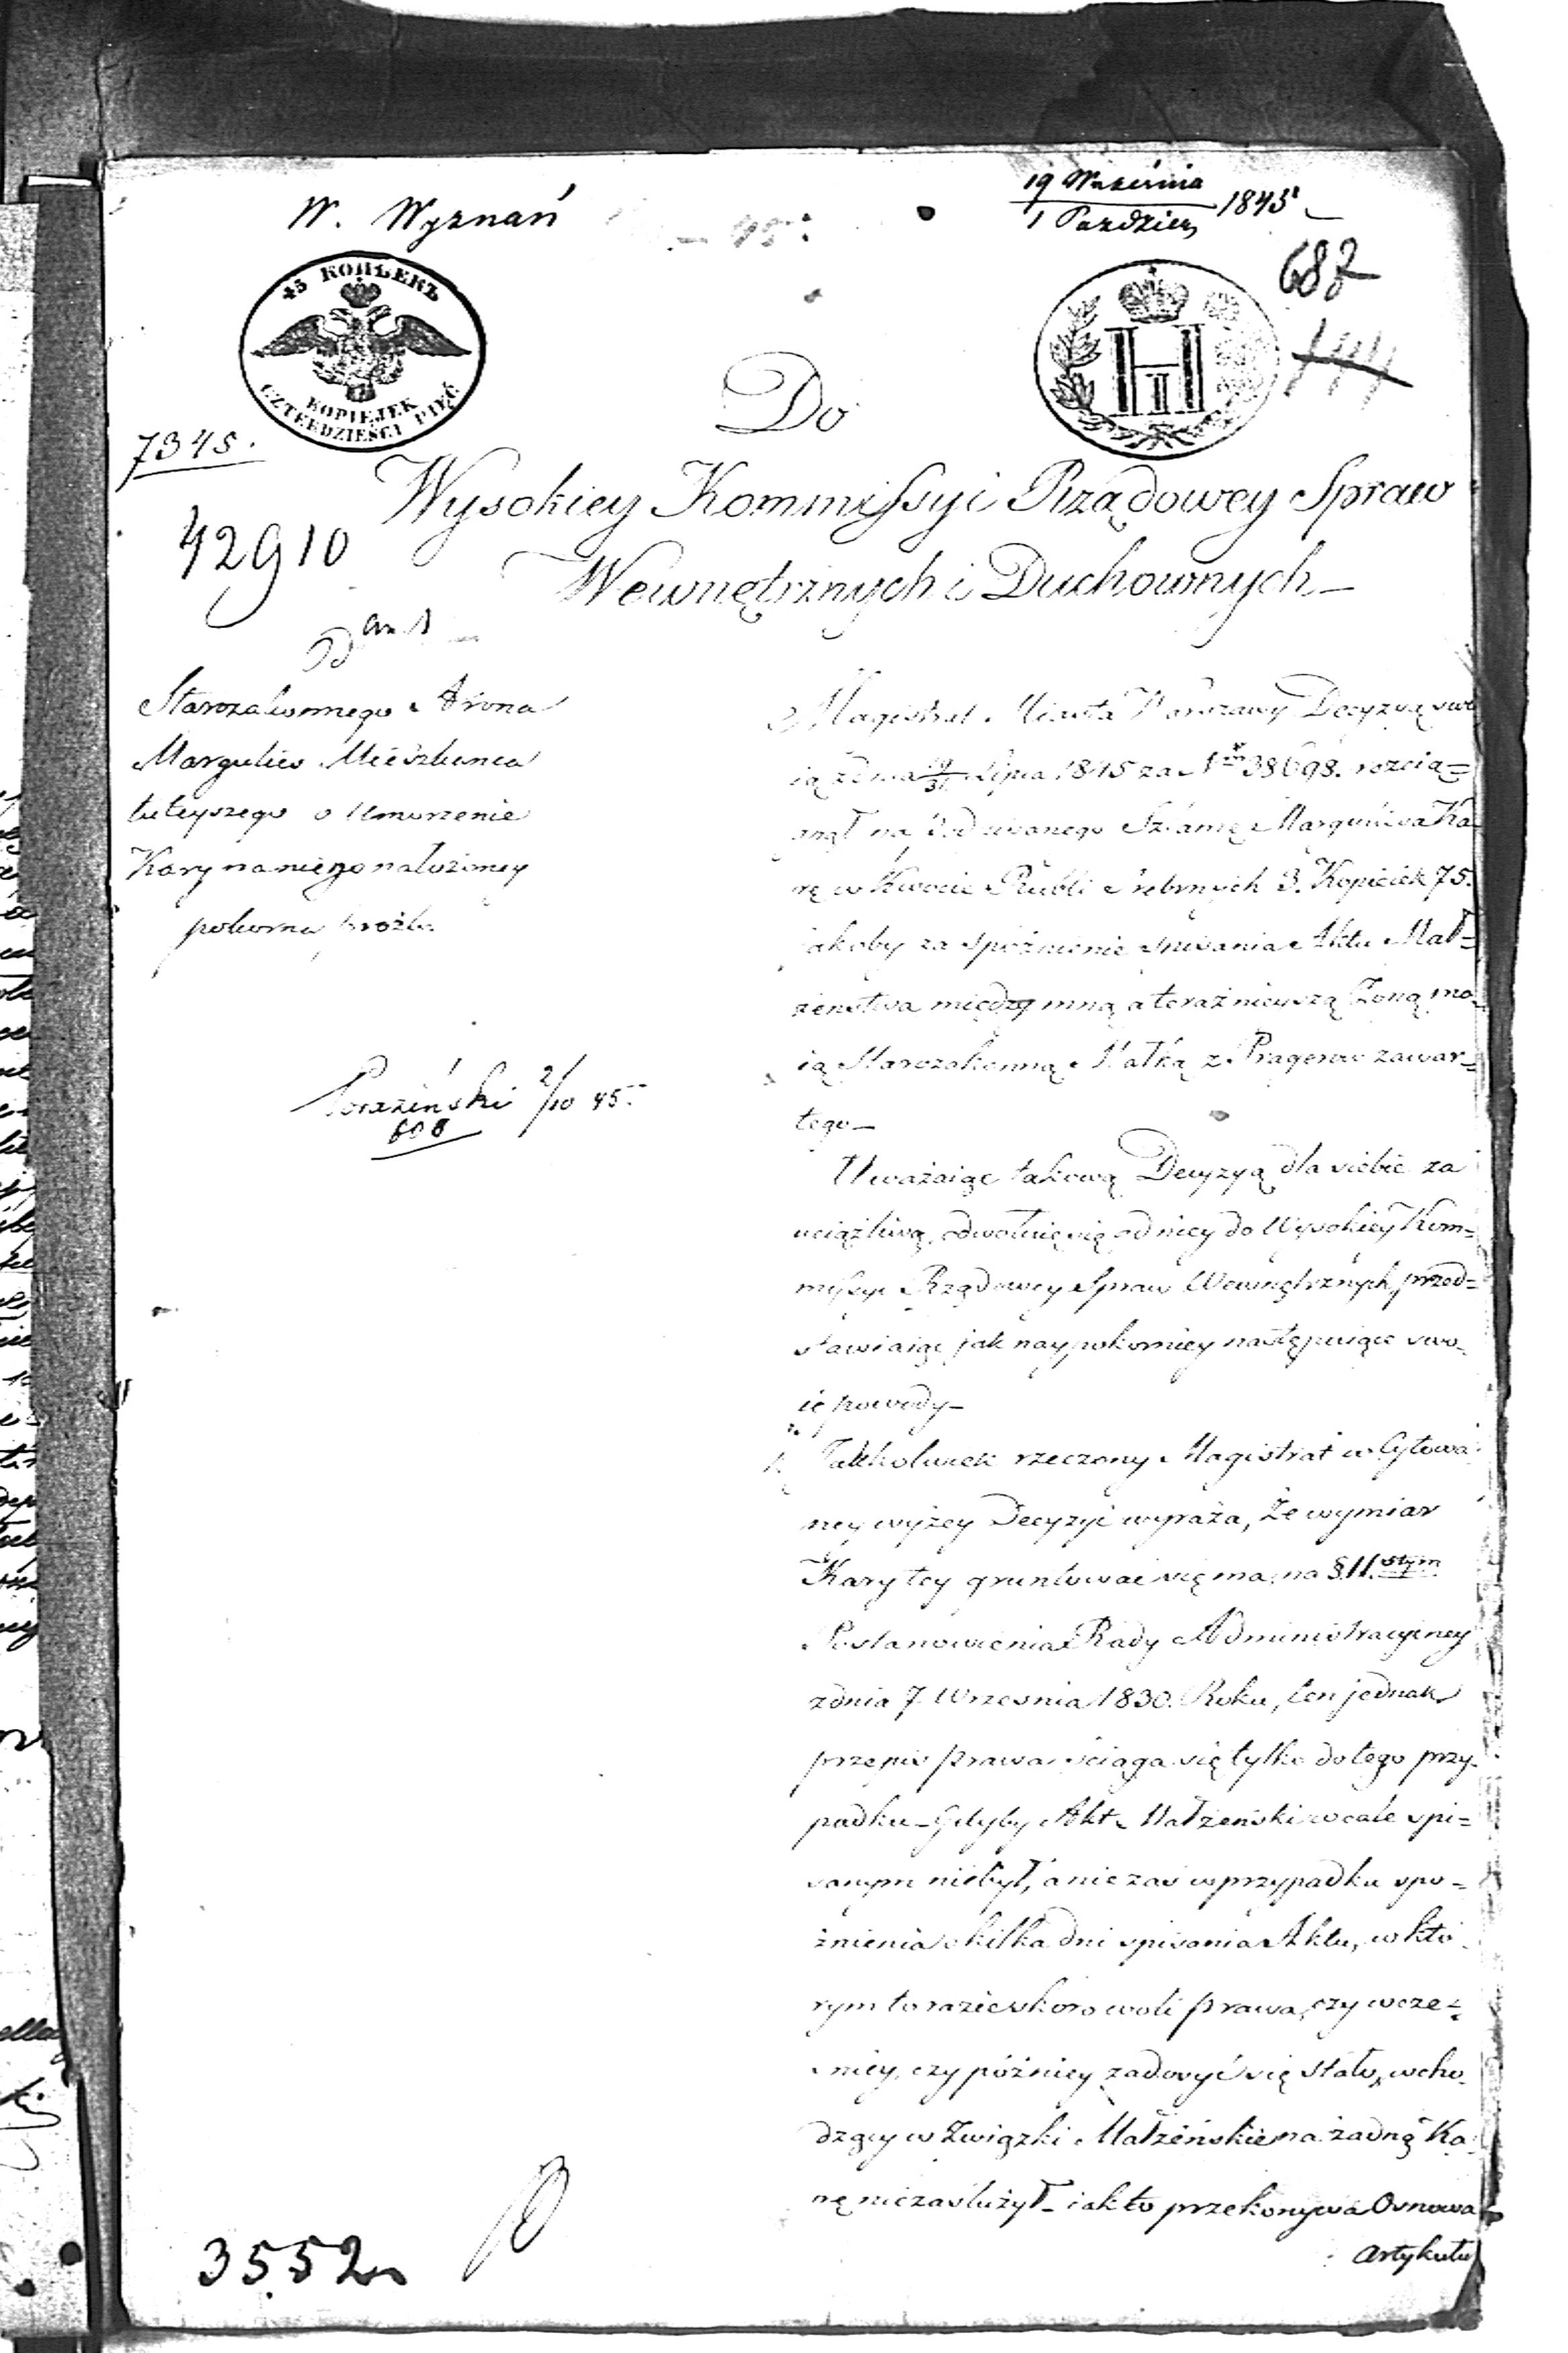 W. Wyznań
19 Września
1 Paździer 1845
687
45 КОПѢЕКЪ
KOPIEJEK
CZTERDZIEŚCI PIĘĆ
Do
7345.
Wysokiey Kommissyi Rządowey Spraw
42910
Wewnętrznych i Duchownych
Od
Starozakonnego Arona
Margulies Mieszkańca
tuteyszego o Umorzenie
Kary na niego nałożoney
pokorna prożba
Poraziński 2/10 45.
608
Magistrat Miasta Warszawy Decyzyą swo
ią z dnia 19/31 Lipca 1845 za Nrem 38698. rozcią=
gnął na Ka
rę w Kwocie Rubli Srebrnych 3. Kopieiek 75.
jakoby za spóźnienie spisania Aktu Mał=
żenstwa między mną a teraźnieyszą Żoną mo
ią Starozakonną z Pragerow zawar=
tego
Uważaiąc takową Decyzyą dla siebie za
uciążliwą, odwołuię się od niey do Wysokiey Kom=
missyi Rządowey Spraw Wewnętrznych, przed=
stawiaiąc jak naypokorniey następuiące swo
ie powody
Jakkolwiek rzeczony Magistrat w Cytowa
ney wyżey Decyzyi wyraża, że wymiar
Kary tey gruntować się ma na §. 11.stym
Postanowienia Rady Administracyiney
z dnia 7. Wrzesnia 1830. Roku, ten jednak
przepis prawa ściąga się tylko do tego przy
padku Gdyby Akt Małżeński wcale spi=
sanym niebył, a nie zaś w przypadku spo=
źnienia kilka dni spisania Aktu, w któ
rym to razie skoro woli prawa, czy wcze=
sniey, czy późniey zadosyć się stało, wcho
dzący w Związki Małżeńskie na żadną Ka
rę niezasłużył iak to przekonywa Osnowa
Artykułu
3552